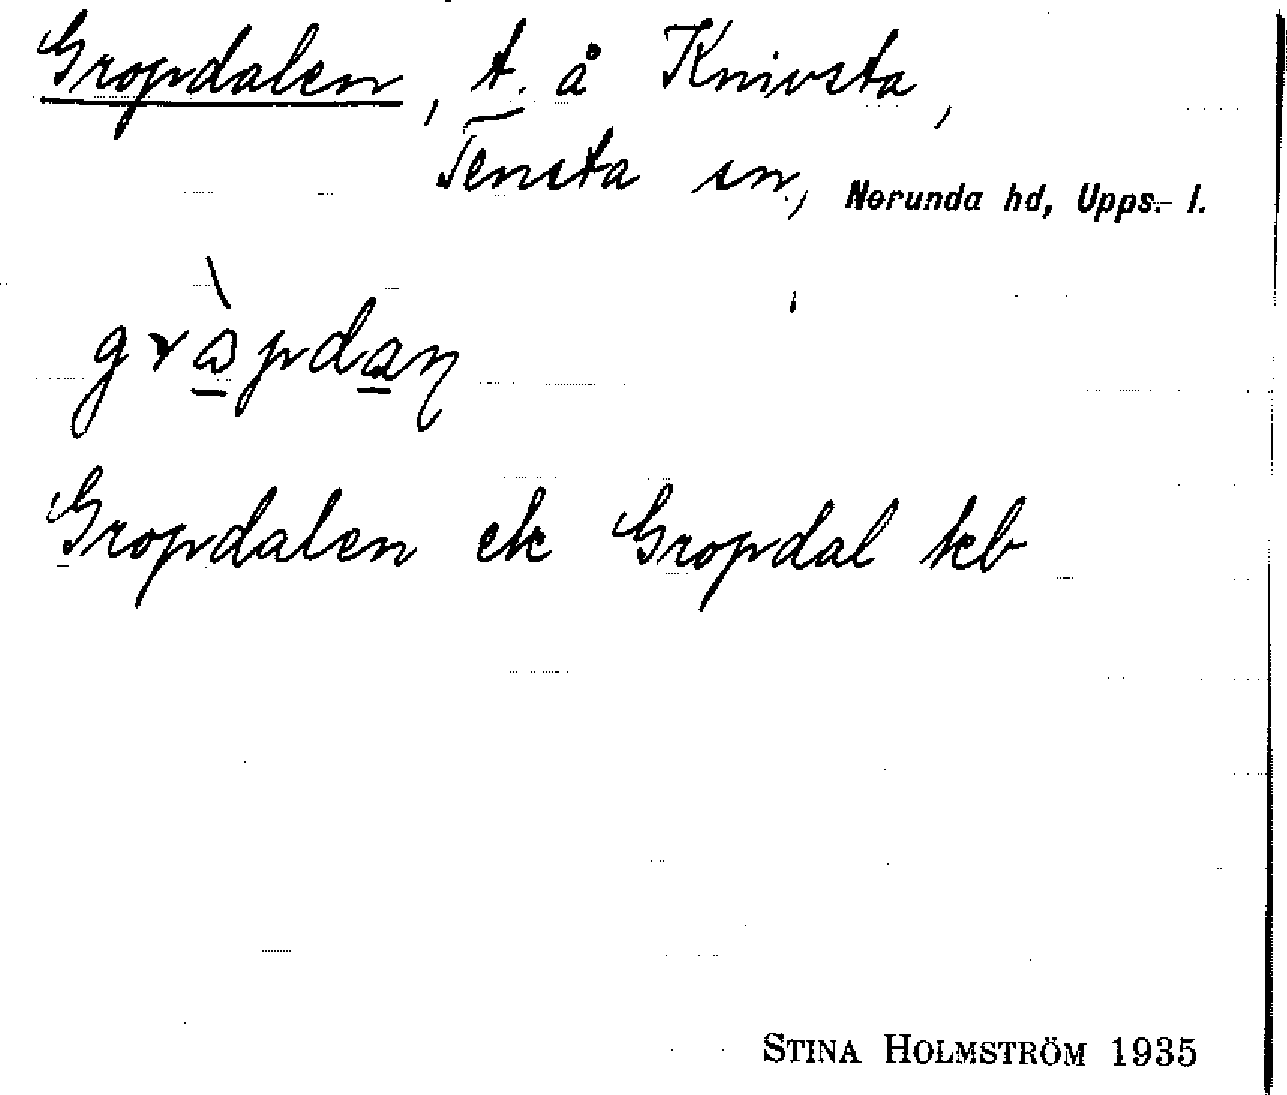 Gropdalen, t. å Knivsta,
Tensta sn, Norunda hd, Upps. l.
gròpdaɳ
Gropdalen ek Gropdal kb
STINA HOLMSTRÖM 1935